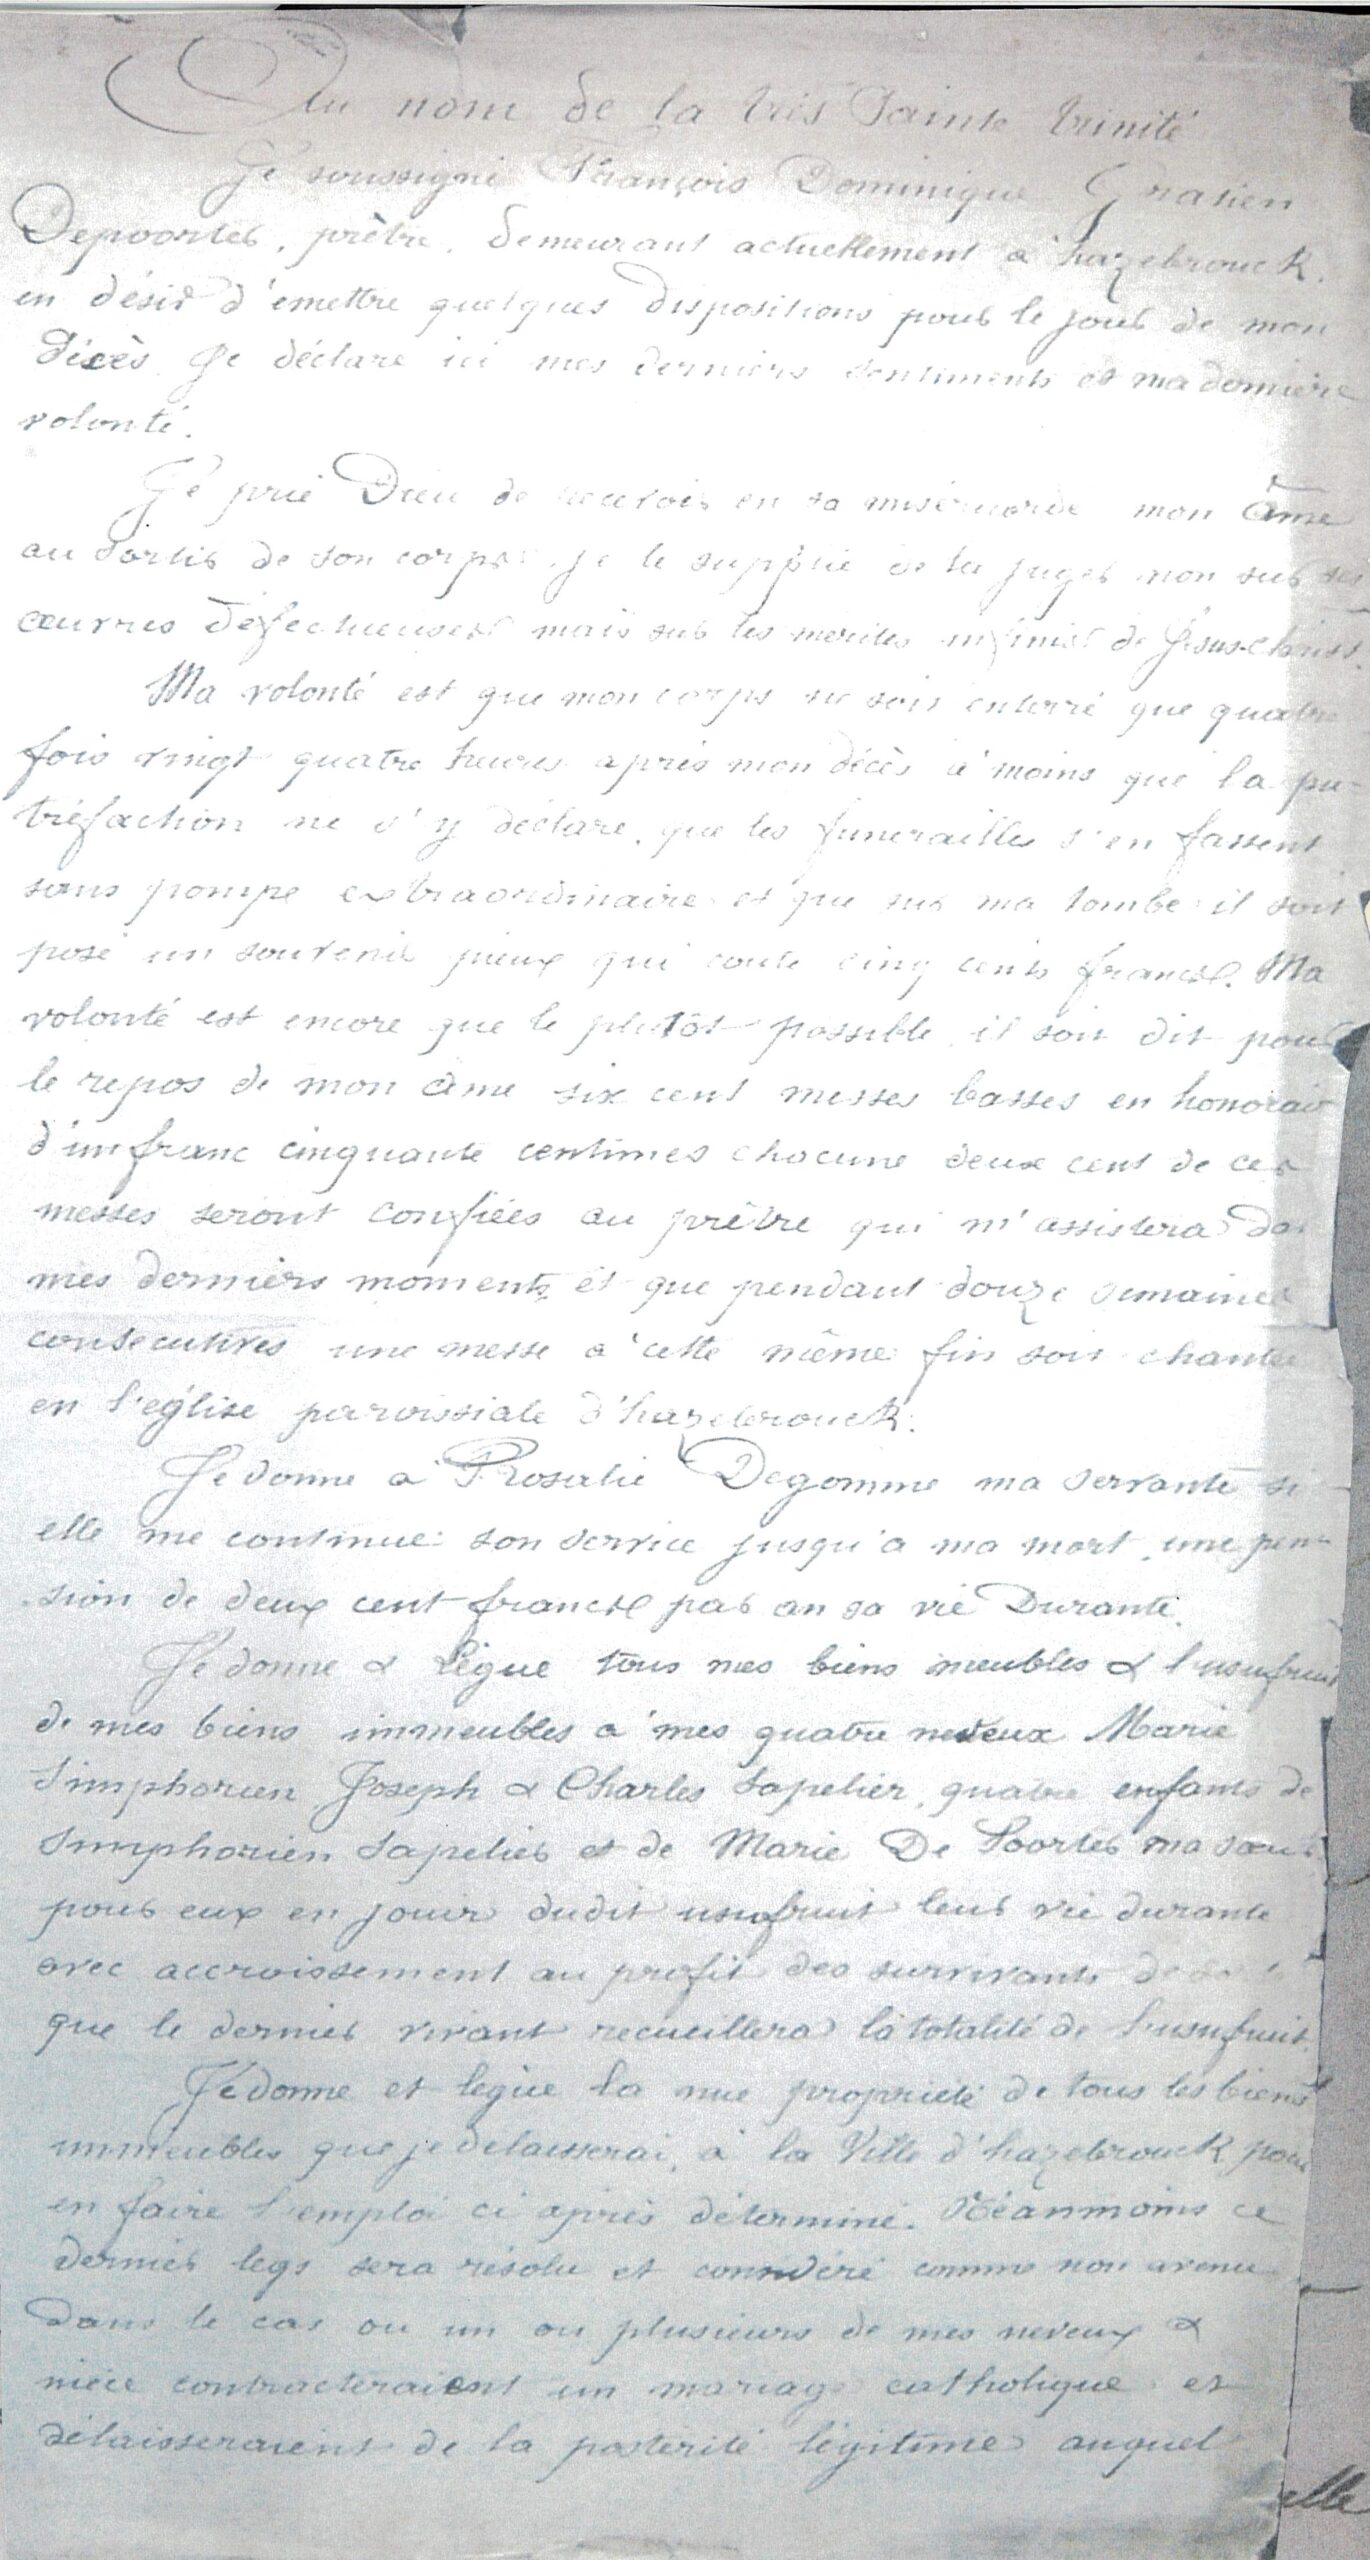 Au nom de la très Sainte trinité
Je soussigné François Dominique Gratien
Depoorter, prêtre, demeurant actuellement à hazebrouck.
en désir d'emettre quelques dispositions pour le jour de mon
décès. Je déclare ici mes derniers sentiments et ma dernière
volonté.
Je prie Dieu de recevoir en sa miséricorde mon âme
au sortir de son corps, je le supplie de la juger non sur ses
œuvres défectueuses mais sur les merites infinis de Jésus-Christ.
Ma volonté est que mon corps ne soit enterré que quatre
fois vingt quatre heures après mon décès à moins que la pu-
tréfaction ne s'y déclare, que les funerailles s'en fassent
sans pompe extraordinaire et que sur ma tombe il soit
posé un souvenir pieux qui coute cinq cents francs. Ma
volonté est encore que le plutôt possible il soit dit pour
le repos de mon âme six cent messes basses en honorair
d'un franc cinquante centimes chacune deux cent de ces
messes seront confiées au prêtre qui m'assistera da
mes derniers moments, et que pendant douze semaines
consecutives une messe à cette même fin soit chantée
en l'eglise paroissiale d'hazebrouck.
Je donne à Rosalie Degomme ma servante si
elle me continue son service jusqu'a ma mort, une pen-
sion de deux cent francs par an sa vie Durante.
Je donne & légue tous mes biens meubles & l'usufruit
de mes biens immeubles à mes quatre neveux Marie
Simphorien Joseph & Charles Lapelier, quatre enfants de
Simphorien Lapelier et de Marie De Poorter ma sœur
pour eux en jouir dudit usufruit leur vie durante
avec accroissement au profit des survivants de
que le dernier vivant recueillera la totalité de l'usufruit.
Je donne et legue la nue propriété de tous les biens
immeubles que je delaisserai, à la Ville d'hazebrouck pour
en faire l'emploi ci après déterminé. Néanmoins ce
dernier legs sera résolu et considéré comme non avenu
Dans le cas ou un ou plusieurs de mes neveux &
nièce contracteraient un mariage catholique et
délaisseraient de la postérité légitime auquel
elle